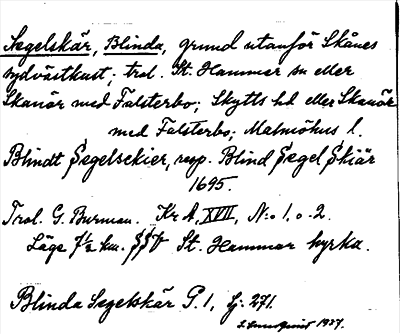 Segelskär, Blinda, grund utanför Skånes
sydvästkust; trol. St. Hammar sn eller
Skanör med Falsterbo; Skytts hd eller Skanör
med Falsterbo; Malmöhus l.
Blindt Segelsekier, resp. Blind Segel Skiär
1695.
Trol. G. Burman. Kr A, XVII, N:o 1, o. 2.
Läge 7½ km. SSV St. Hammar kyrka.
Blinda Segelskär P. 1, Gj: 271.
1927.